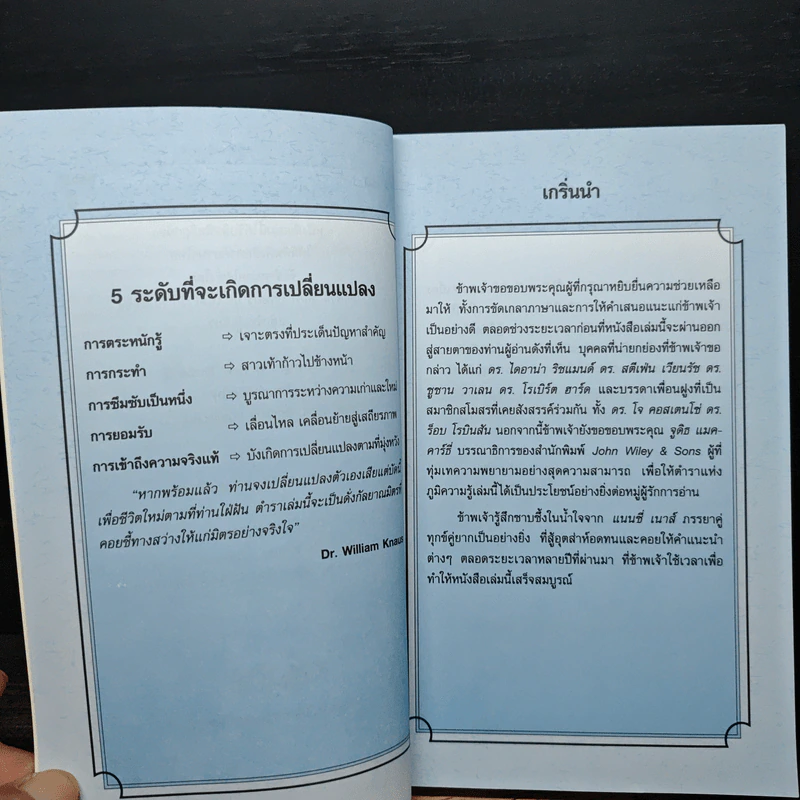 5 ระดับที่จะเกิดการเปลี่ยนแปลง
การตระหนักรู้ ⇨ เจาะตรงที่ประเด็นปัญหาสำคัญ
การกระทำ ⇨ สาวเท้าก้าวไปข้างหน้า
การซึมซับเป็นหนึ่ง ⇨ บูรณาการระหว่างความเก่าและใหม่
การยอมรับ ⇨ เลื่อนไหล เคลื่อนย้ายสู่เสถียรภาพ
การเข้าถึงความจริงแท้ ⇨ บังเกิดการเปลี่ยนแปลงตามที่มุ่งหวัง
“หากพร้อมแล้ว ท่านจงเปลี่ยนแปลงตัวเองเสียแต่บัดนี้
เพื่อชีวิตใหม่ตามที่ท่านใฝ่ฝัน ตำราเล่มนี้จะเป็นดั่งกัลยาณมิตรที่
คอยชี้ทางสว่างให้แก่มิตรอย่างจริงใจ”
Dr. William Knaus
เกริ่นนำ
ข้าพเจ้าขอขอบพระคุณผู้ที่กรุณาหยิบยื่นความช่วยเหลือ
มาให้ ทั้งการขัดเกลาภาษาและการให้คำเสนอแนะแก่ข้าพเจ้า
เป็นอย่างดี ตลอดช่วงระยะเวลาก่อนที่หนังสือเล่มนี้จะผ่านออก
สู่สายตาของท่านผู้อ่านดังที่เห็น บุคคลที่น่ายกย่องที่ข้าพเจ้าขอ
กล่าว ได้แก่ ดร. ไดอาน่า ริชแมนด์ ดร. สตีเฟ่น เวียนรัช ดร.
ซูซาน วาเลน ดร. โรเบิร์ต ฮาร์ด และบรรดาเพื่อนฝูงที่เป็น
สมาชิกสโมสรที่เคยสังสรรค์ร่วมกัน ทั้ง ดร. โจ คอสเตนโซ่ ดร.
ร็อบ โรบินสัน นอกจากนี้ข้าพเจ้ายังขอขอบพระคุณ จูดิธ แมค-
คาร์ธี่ บรรณาธิการของสำนักพิมพ์ John Wiley & Sons ผู้ที่
ทุ่มเทความพยายามอย่างสุดความสามารถ เพื่อให้ตำราแห่ง
ภูมิความรู้เล่มนี้ได้เป็นประโยชน์อย่างยิ่งต่อหมู่ผู้รักการอ่าน
ข้าพเจ้ารู้สึกซาบซึ้งในน้ำใจจาก แนนซี่ เนาส์ ภรรยาคู่
ทุกข์คู่ยากเป็นอย่างยิ่ง ที่สู้อุตส่าห์อดทนและคอยให้คำแนะนำ
ต่างๆ ตลอดระยะเวลาหลายปีที่ผ่านมา ที่ข้าพเจ้าใช้เวลาเพื่อ
ทำให้หนังสือเล่มนี้เสร็จสมบูรณ์